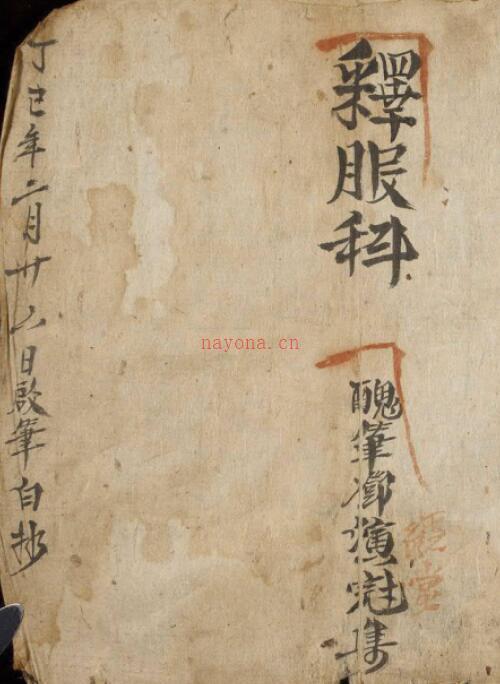 釋服科
醜筆演集
經堂
丁巳年二月廿六日啟筆自抄
nayona.cn